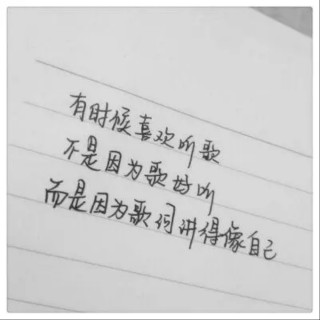 有时候喜欢听歌
不是因为歌好听
而是因为歌词讲得像自己